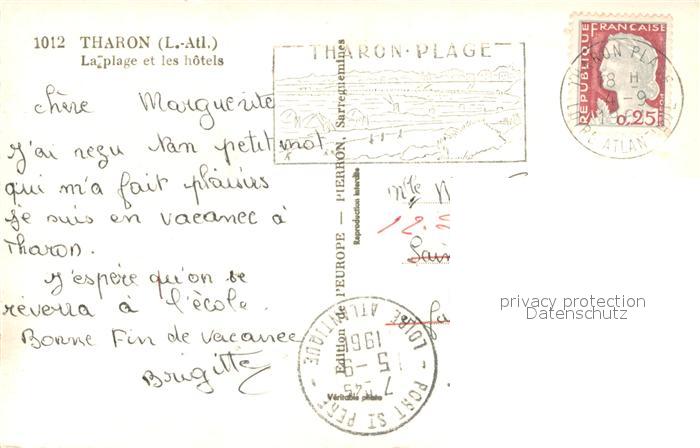 1012 THARON (L.-Atl.)
La plage et les hôtels
THARON-PLAGE
RÉPUBLIQUE FRANÇAISE
0,25
THARON PLAGE
18 H
-9
LOIRE ATLANTIQUE
chère Marguerite
J'ai reçu ton petit mot
qui m'a fait plaisirs
Je suis en vacance à
Tharon.
J'espère qu'on se
reverra à l'école.
Bonne Fin de vacance
Brigitte
Edition de l'EUROPE — PIERRON, Sarreguemines
Reproduction interdite
Véritable photo
Mlle
privacy protection
Datenschutz
PORT ST PERE
7 H 45
5-9
196
LOIRE ATLANTIQUE